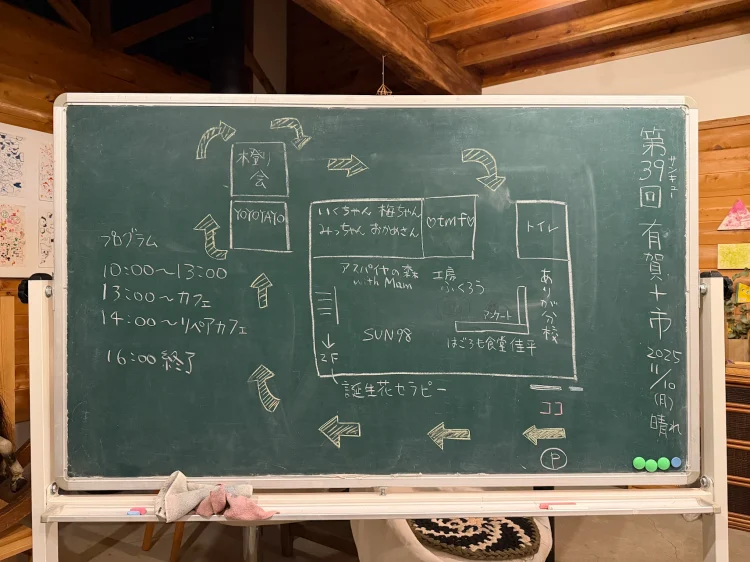 第39回 有賀十市
サンキュー
2025
11/10
(月)
晴れ
橙り
会
YOYOTAYO
プログラム
10:00〜13:00
13:00〜カフェ
14:00〜リペアカフェ
16:00 終了
いくちゃん 梅ちゃん
みっちゃん おかめさん
♡tmf♡
トイレ
アスパイヤの森
with Mam
工房
ふくろう
ありが分校
アンケート
SUN98
はごろも食堂 佳平
2F
誕生花セラピー
ココ
P